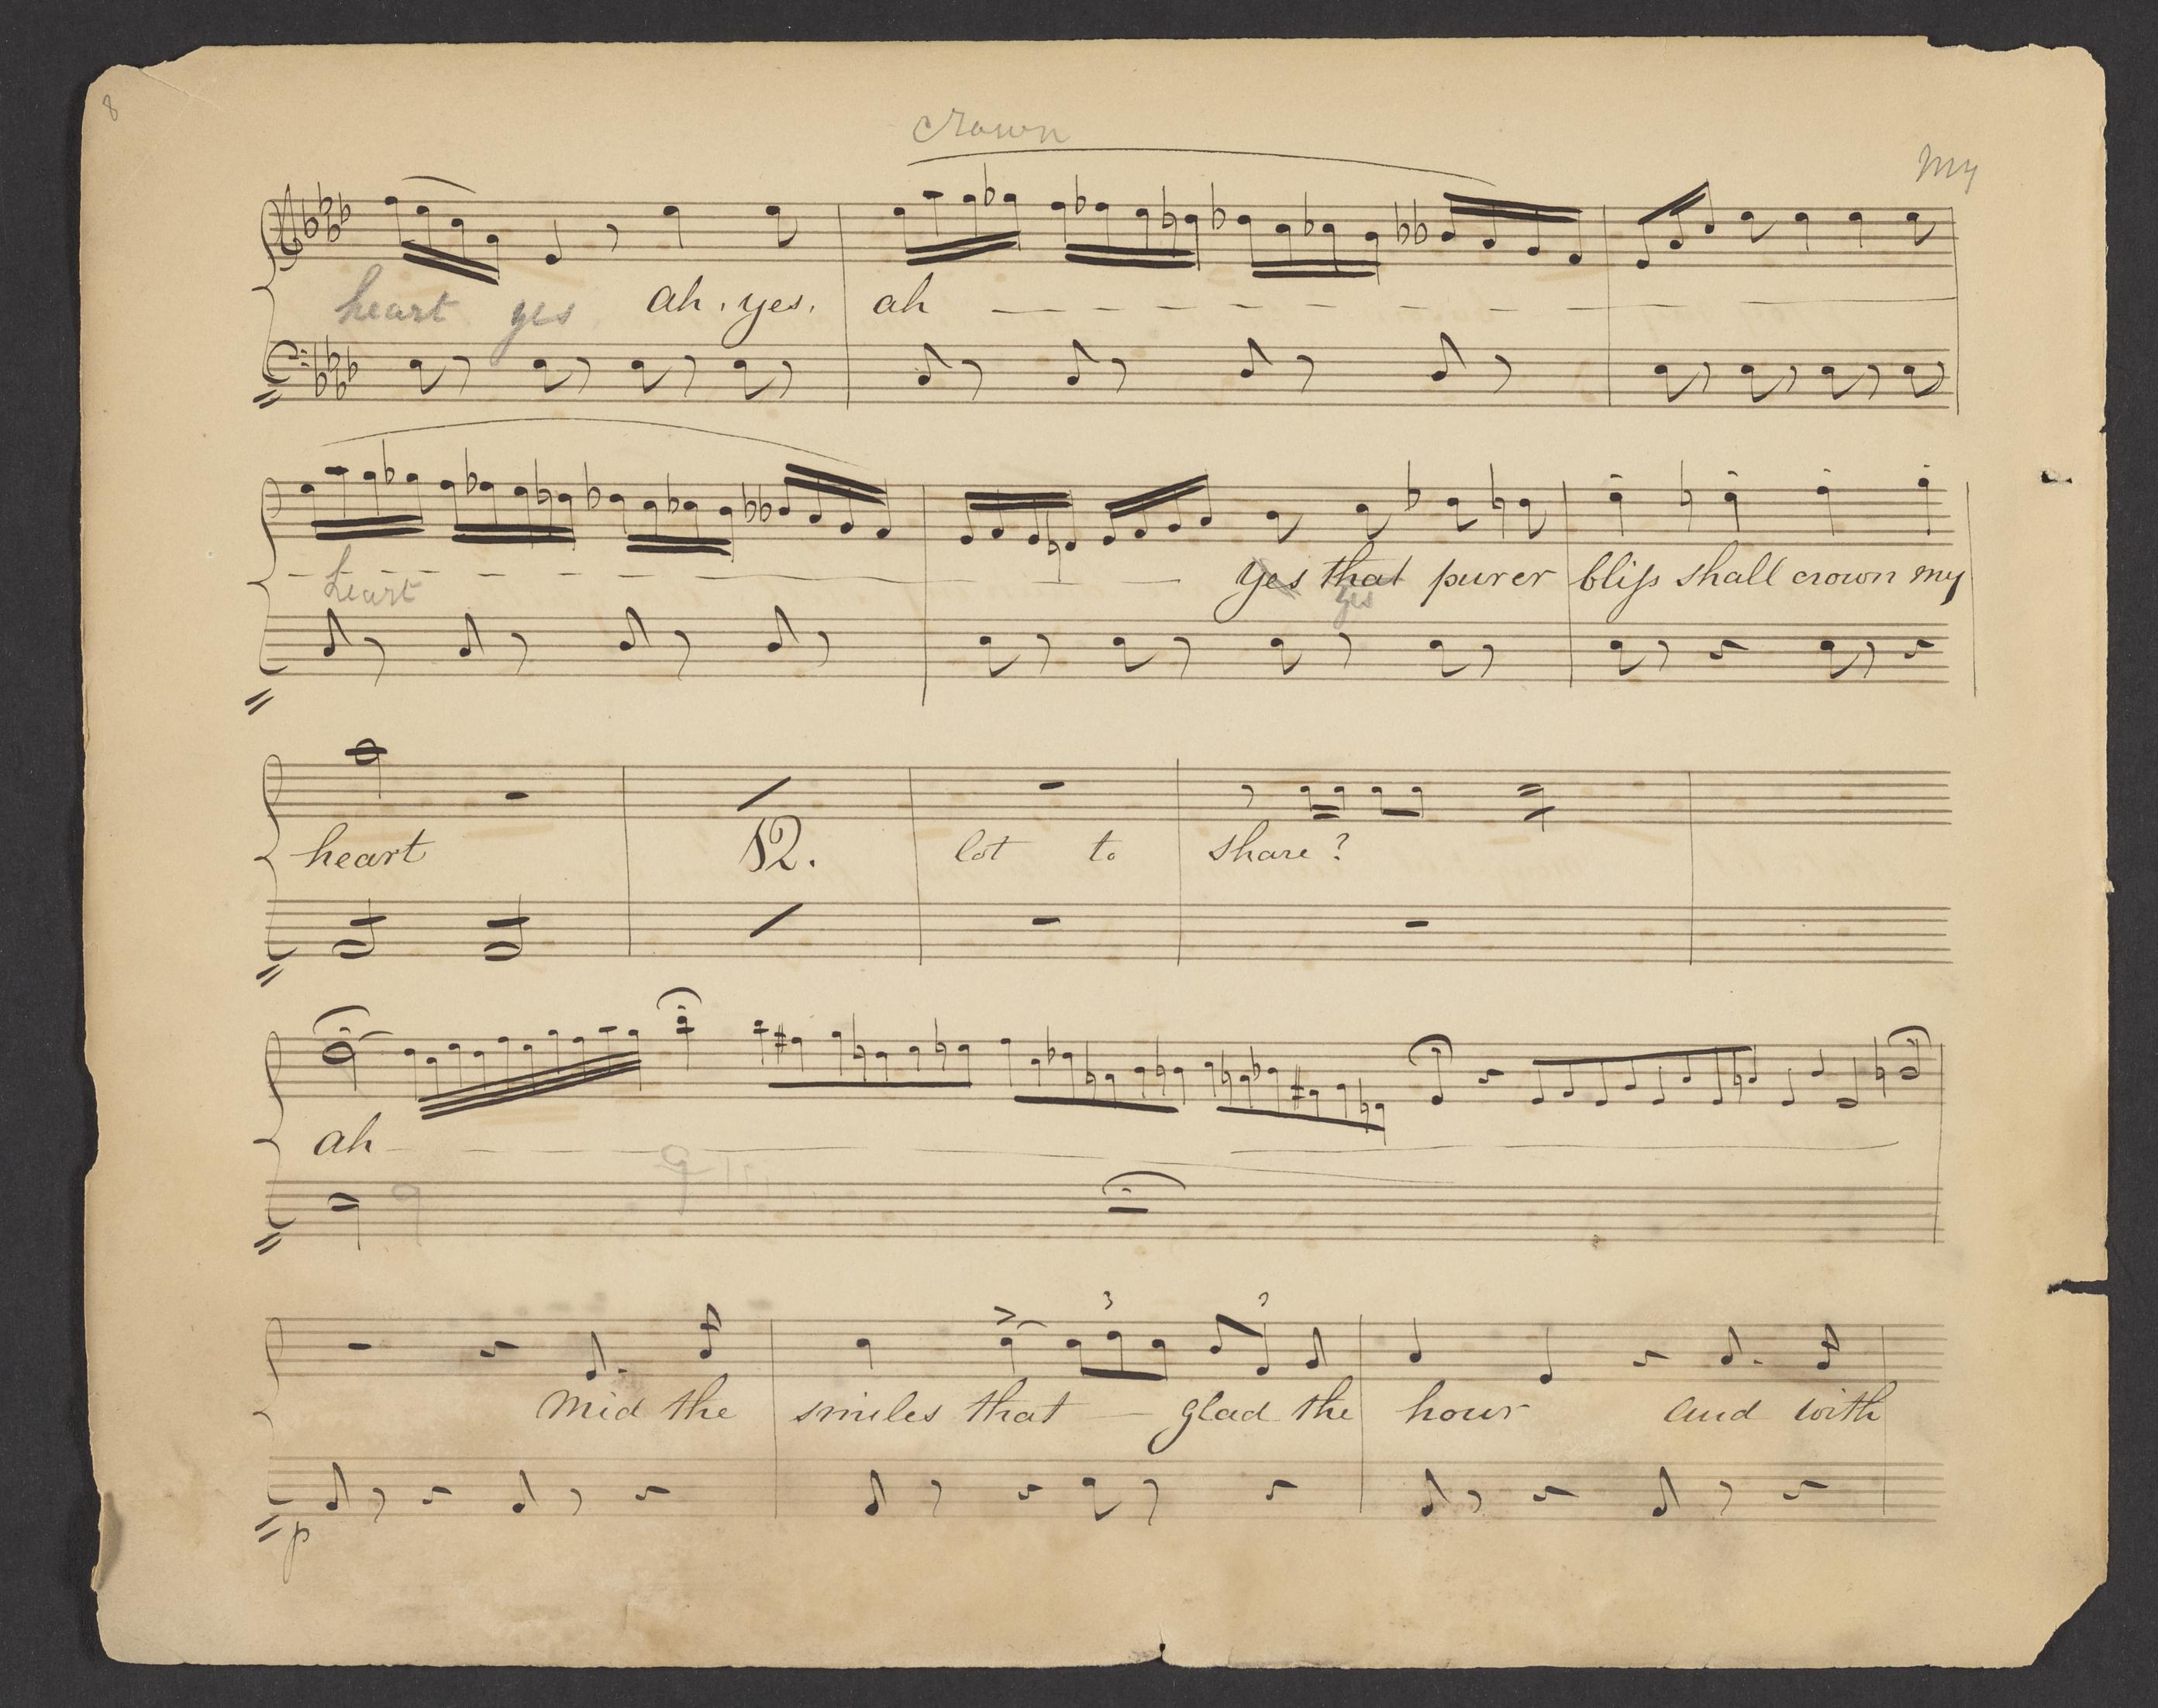 8
crown
my
heart yes ah, yes, ah
heart
yes that purer bliſs shall crown my
yes
heart 12. lot to share?
ah
3 3
mid the smiles that glad the hour and with
p